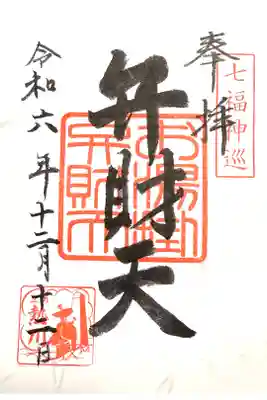 七福神巡
奉拝
弁財天
令和六年十二月十二日